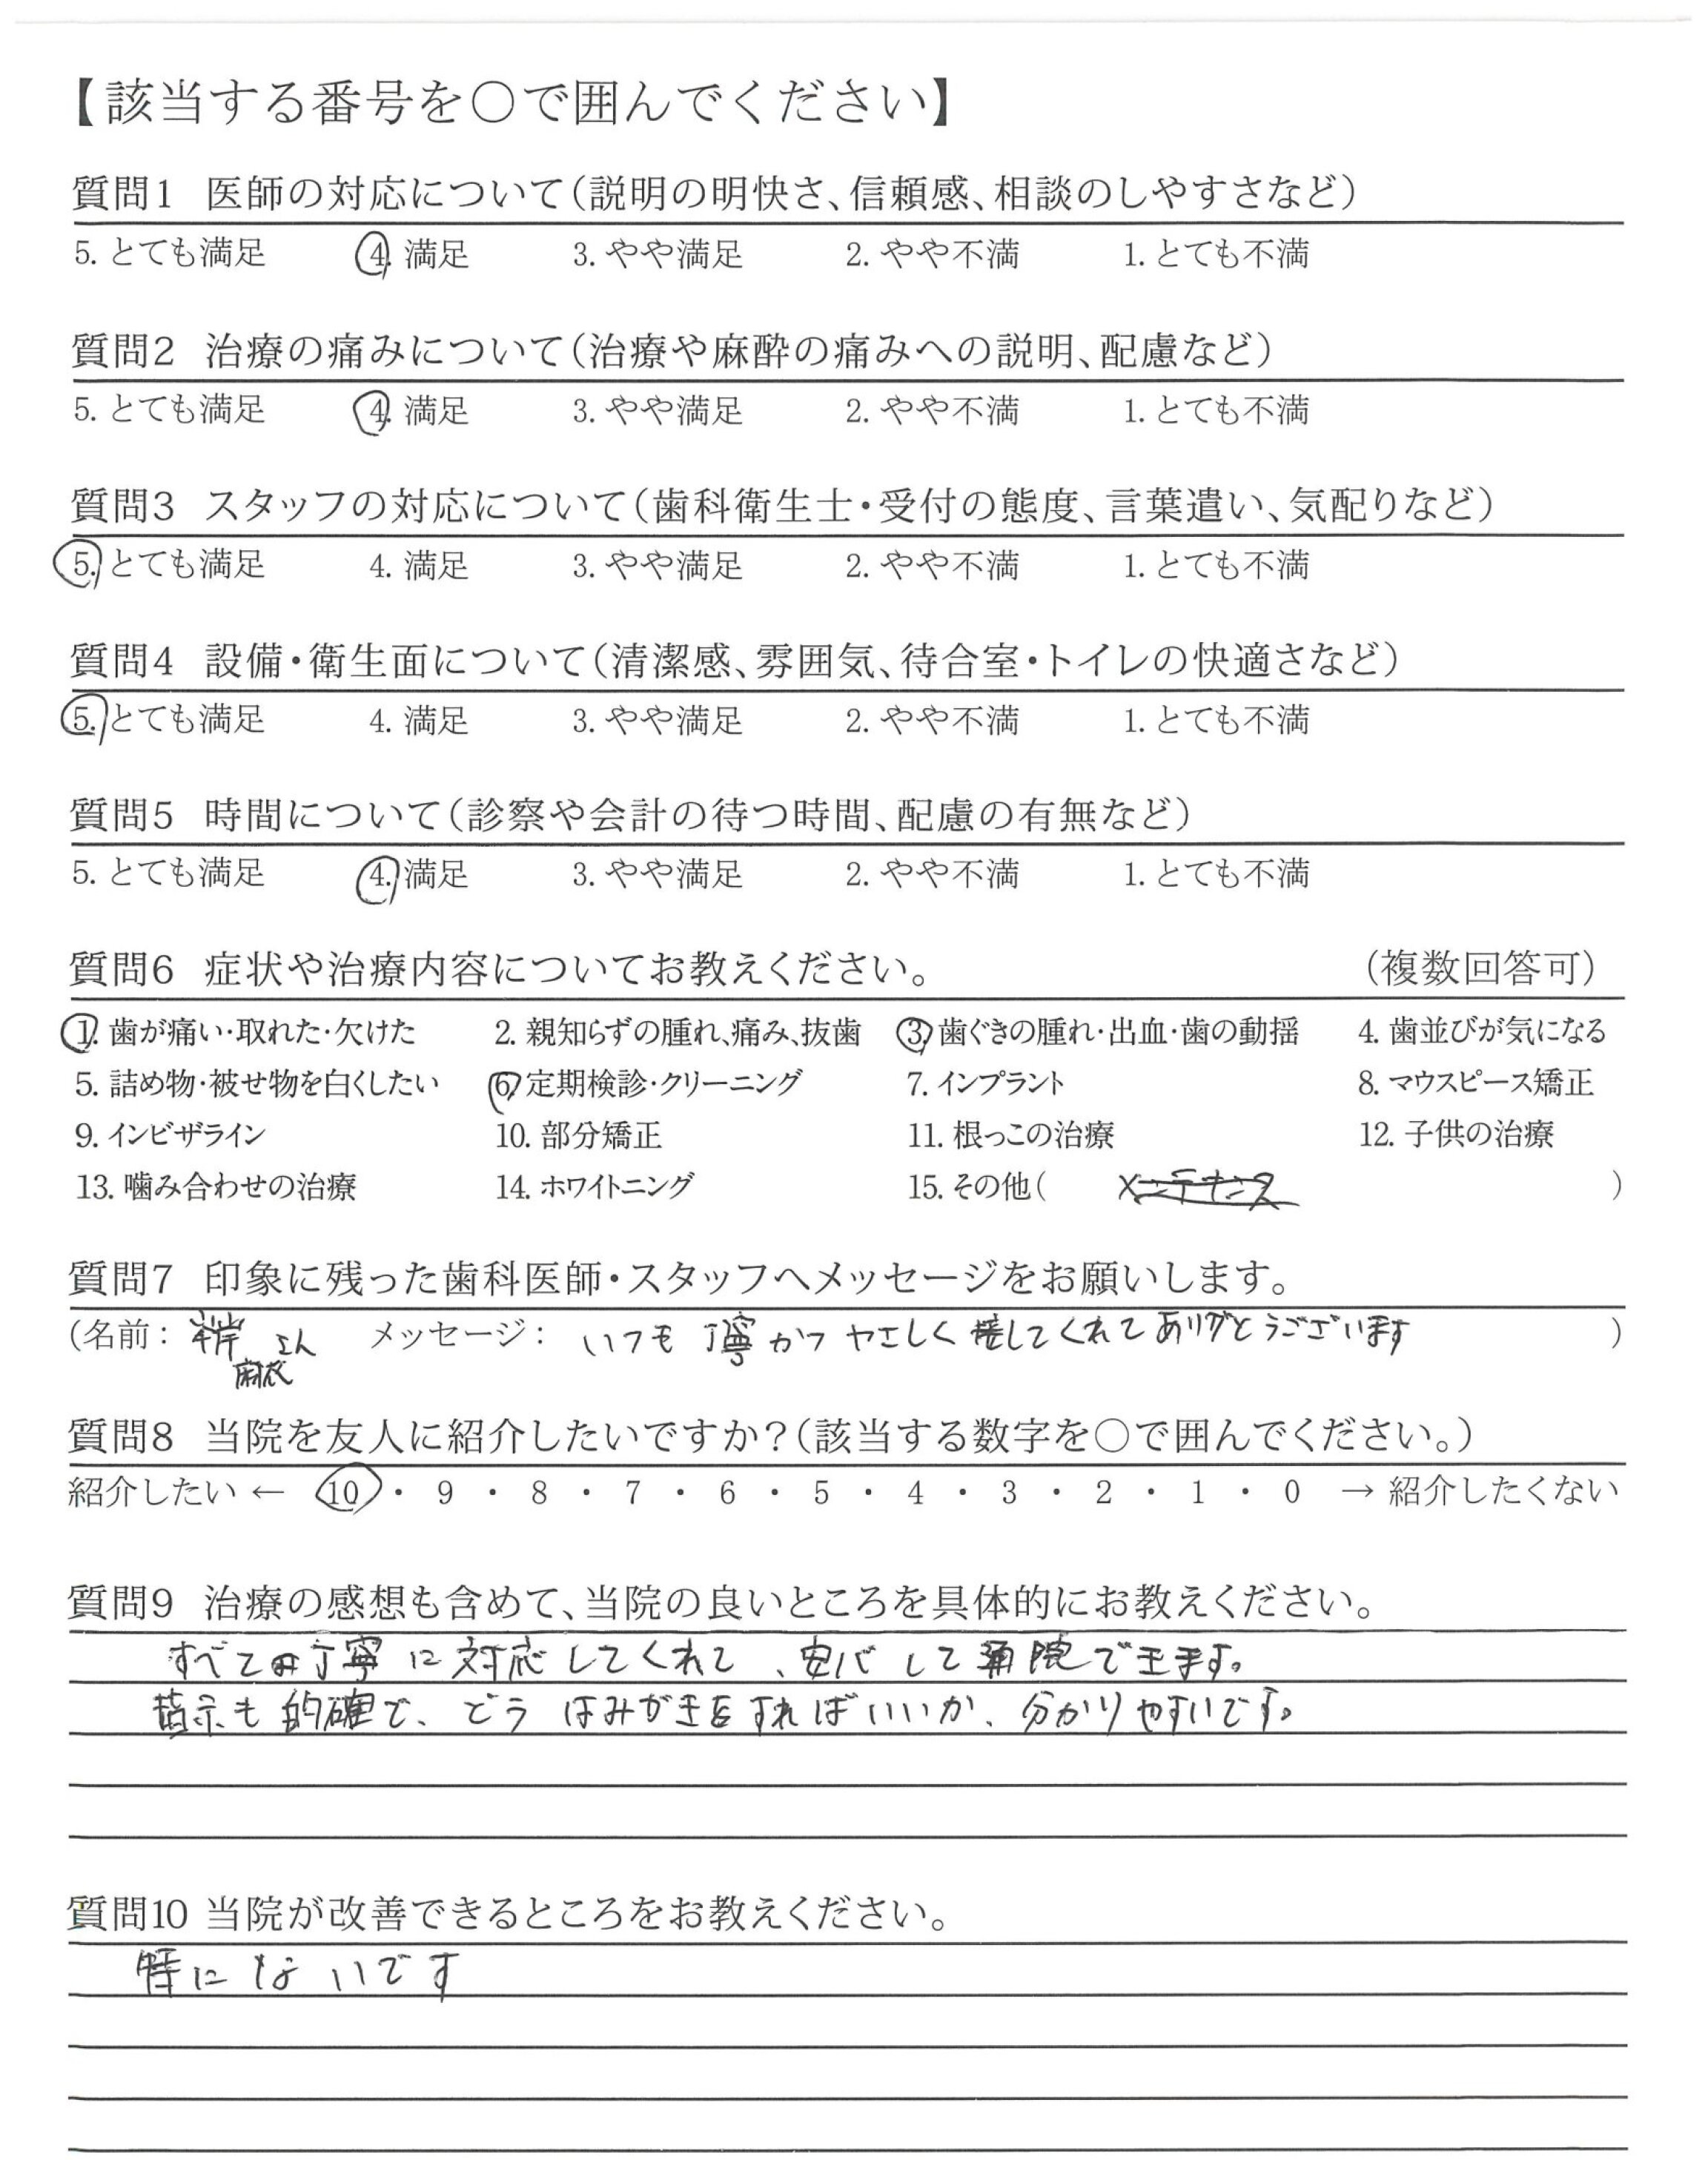 【該当する番号を○で囲んでください】
質問1 医師の対応について(説明の明快さ、信頼感、相談のしやすさなど)
5. とても満足 4. 満足 3. やや満足 2. やや不満 1. とても不満
質問2 治療の痛みについて(治療や麻酔の痛みへの説明、配慮など)
5. とても満足 4. 満足 3. やや満足 2. やや不満 1. とても不満
質問3 スタッフの対応について(歯科衛生士・受付の態度、言葉遣い、気配りなど)
5. とても満足 4. 満足 3. やや満足 2. やや不満 1. とても不満
質問4 設備・衛生面について(清潔感、雰囲気、待合室・トイレの快適さなど)
5. とても満足 4. 満足 3. やや満足 2. やや不満 1. とても不満
質問5 時間について(診察や会計の待つ時間、配慮の有無など)
5. とても満足 4. 満足 3. やや満足 2. やや不満 1. とても不満
質問6 症状や治療内容についてお教えください。 (複数回答可)
1. 歯が痛い・取れた・欠けた 2. 親知らずの腫れ、痛み、抜歯 3. 歯ぐきの腫れ・出血・歯の動揺 4. 歯並びが気になる
5. 詰め物・被せ物を白くしたい 6. 定期検診・クリーニング 7. インプラント 8. マウスピース矯正
9. インビザライン 10. 部分矯正 11. 根っこの治療 12. 子供の治療
13. 噛み合わせの治療 14. ホワイトニング 15. その他( メンテナンス )
質問7 印象に残った歯科医師・スタッフへメッセージをお願いします。
(名前: さん メッセージ: いつも丁寧かつやさしく接してくれてありがとうございます )
麻衣
質問8 当院を友人に紹介したいですか?(該当する数字を○で囲んでください。)
紹介したい ← 10 ・ 9 ・ 8 ・ 7 ・ 6 ・ 5 ・ 4 ・ 3 ・ 2 ・ 1 ・ 0 → 紹介したくない
質問9 治療の感想も含めて、当院の良いところを具体的にお教えください。
すべての丁寧に対応してくれて、安心して通院できます。
指示も的確で、どうはみがきをすればいいか、分かりやすいです。
質問10 当院が改善できるところをお教えください。
特にないです